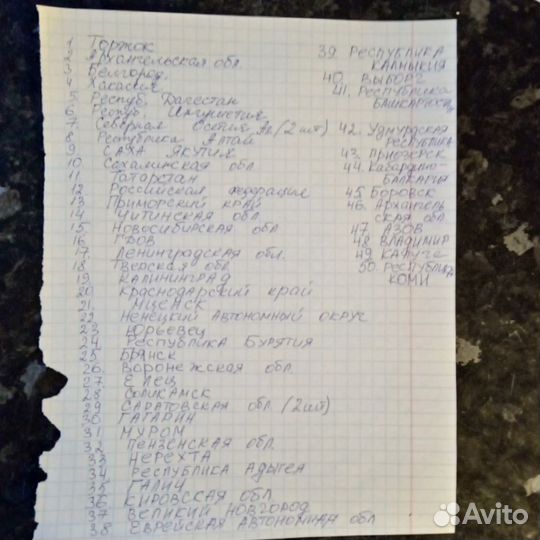 1 Торжок
2 Архангельская обл.
3 Белгород.
4 Хакасия
5 Респуб. Дагестан
6 Респуб. Ингушетия
7 Северная Осетия А. (2 шт)
8 Республика Алтай
9 САХА ЯКУТИЯ
10 Сахалинская обл
11 Татарстан
12 Российская Федерация
13 Приморский край
14 Читинская обл
15 Новосибирская обл
16 ГДОВ
17. Ленинградская обл.
18 Тверская обл
19 КАЛИНИНГРАД
20 Краснодарский край
21. МЦЕНСК
22 Ненецкий АВТОНОМНЫЙ округ
23 Юрьевец
24. Республика БУРЯТИЯ
25 БРЯНСК
26. Воронежская обл.
27. Елец
28 СОЛИКАМСК
29 САРАТОВСКАЯ обл. (2 шт)
30 ГАГАРИН
31. МУРОМ
32. ПЕНЗЕНСКАЯ обл.
33 НЕРЕХТА
34 РЕСПУБЛИКА АДЫГЕЯ
35 ГАЛИЧ
36 КИРОВСКАЯ ОБЛ
37 ВЕЛИКИЙ НОВГОРОД
38. ЕВРЕЙСКАЯ АВТОНОМНАЯ обл
39. РЕСПУБЛИКА
КАЛМЫКИЯ
40. ВЫБОРГ
41. РЕСПУБЛИКА
БАШКОРТОСТ
42. УДМУРТСКАЯ
РЕСПУБЛИКА
43. ПРИОЗЕРСК
44. Кабардино-
БАЛКАРИЯ
45 БОРОВСК
46. АРХАНГЕЛЬ
СКАЯ обл
47. АЗОВ
48. ВЛАДИМИР
49. КАЛУГА
50. РЕСПУБЛИКА
КОМИ
Avito